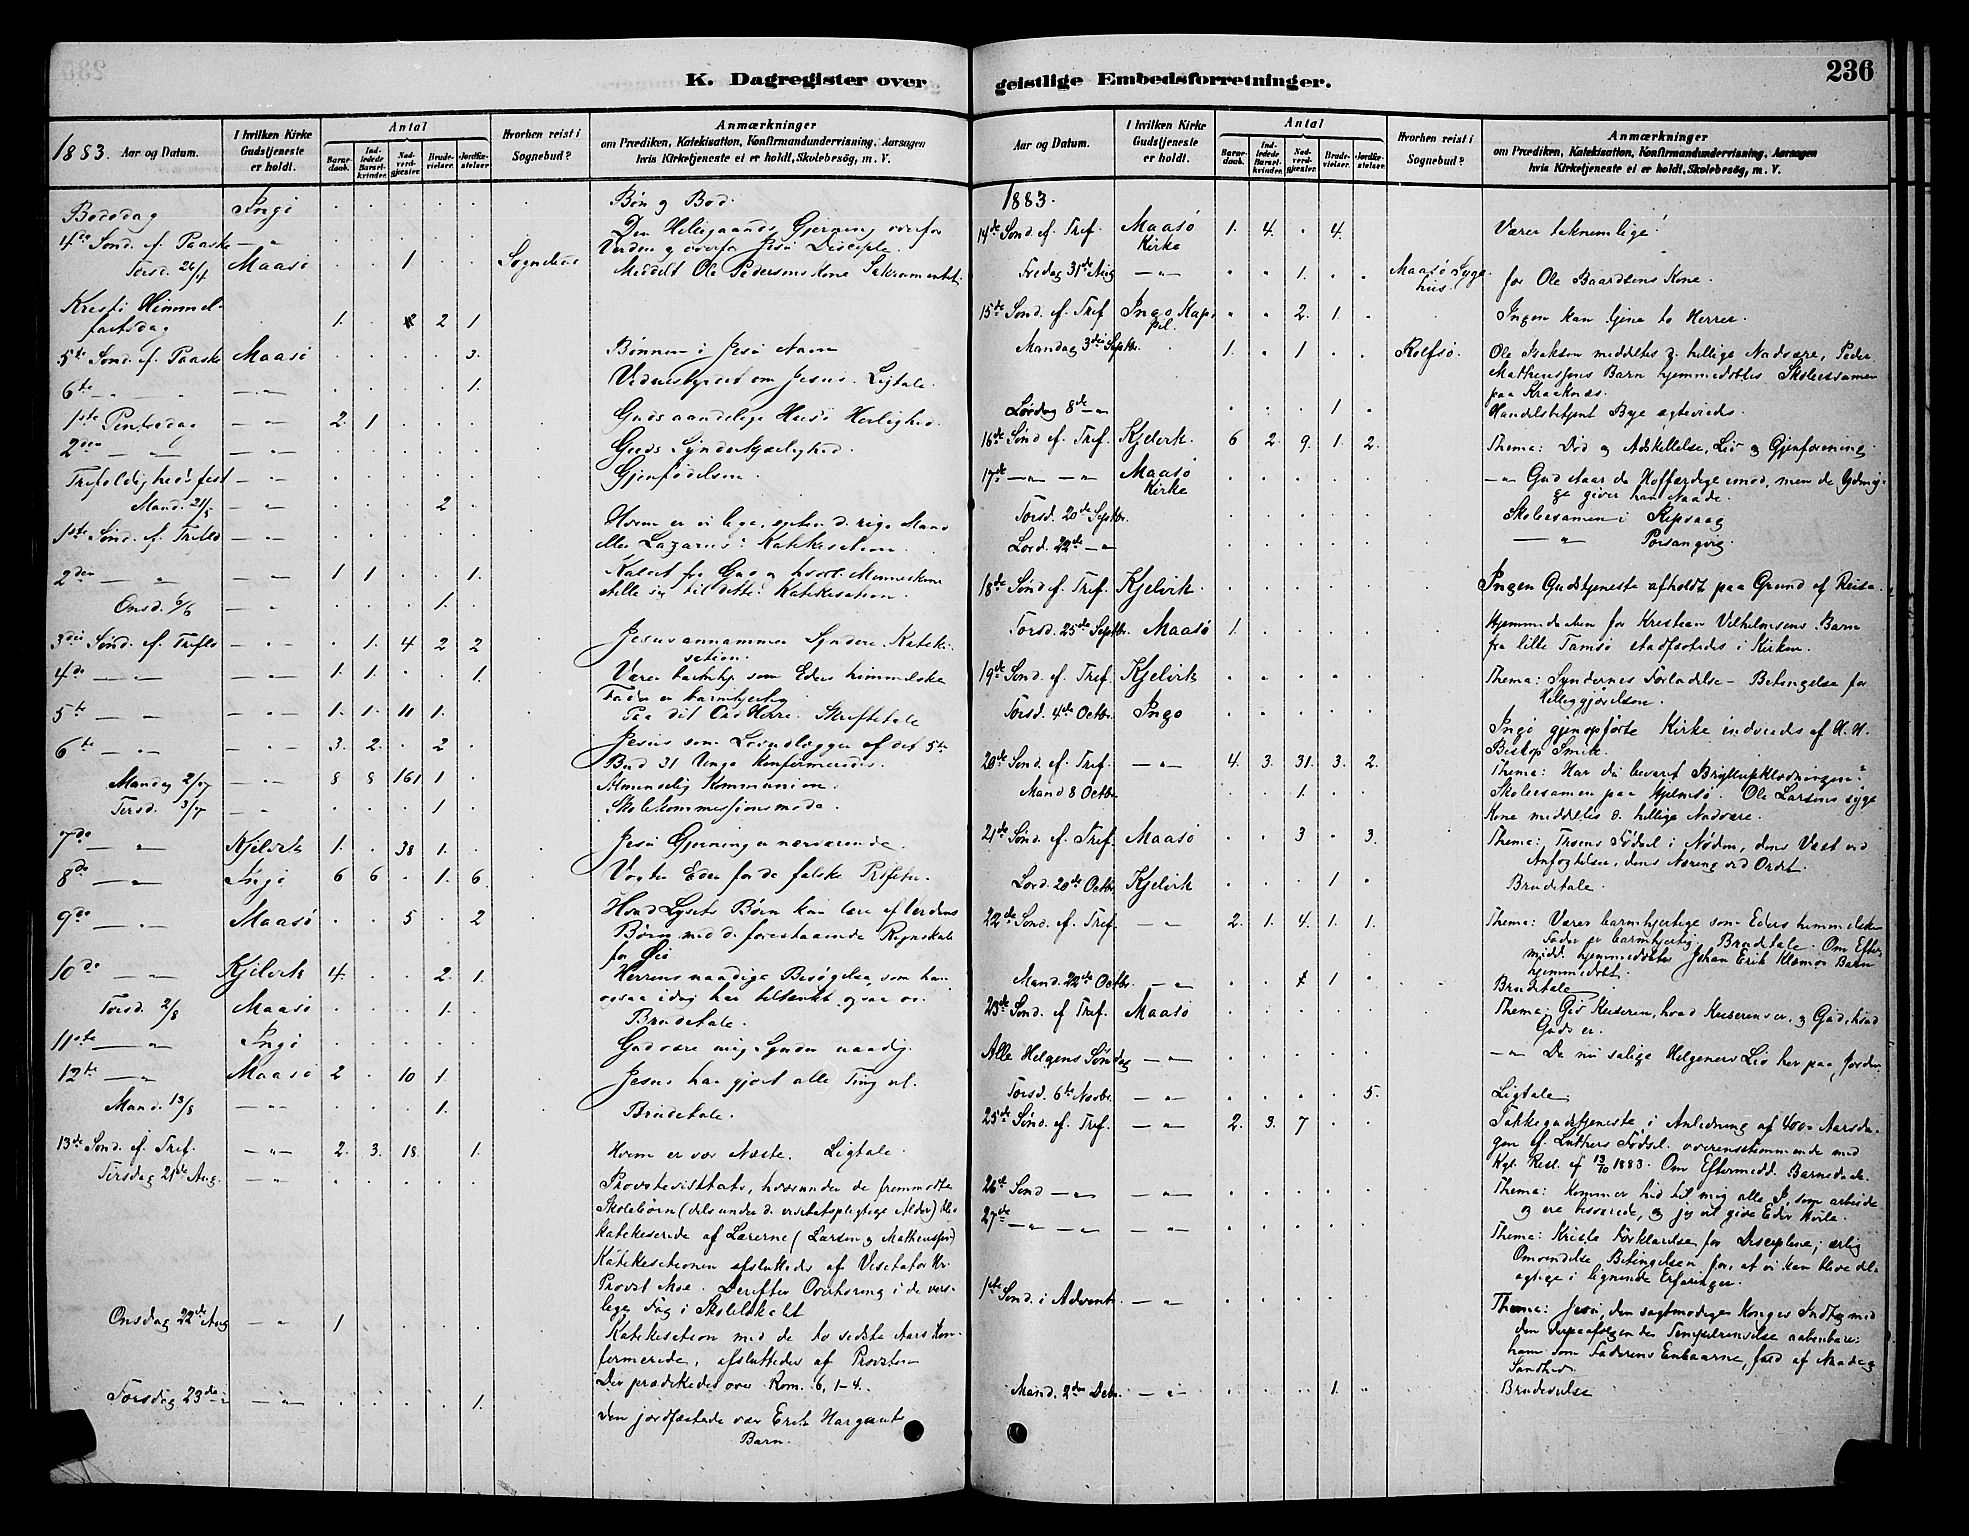 K. Dagregister over
1883. Aar og Datum.
I hvilken Kirke Gudstjeneste er holdt.
Antal
Barnedaab. Indledede Barselkvinder. Nadverdgjester. Brudevielser. Jordfæstelser.
Hvorhen reist i Sognebud?
Anmærkninger
om Prædiken, Katekisation, Konfirmandundervisning, Aarsagen
hvis Kirketjeneste ei er holdt, Skolebesøg, m. V.
Bededag Ingø . . . . . Bøn og Bod.
4de Sønd. ef. Paaske — " — . . . . . Den Helligaands Gjerning overfor
Verden og overfor Jesu Disciple.
Torsd. 26/4 Maasø . . 1 . . Meddelt Ole Pedersens Kone Sakramentet.
Kristi Himmel-
fartsdag 1. . 2 1
5te Sønd. ef. Paaske Maasø . . . . 3. Bønnen i Jesu Navn
6te — " — — " — . . . . 1. Vidnesbyrdet om Jesus. Ligtale.
1ste Pintsedag — " — 2. 1 . . . Guds aandelige Huses Herlighed.
2den — " — — " — . . . . . Guds Synderkjærlighed.
Trefoldighedsfest — " — . . . . . Gjenfødelsen.
Mand. 21/5 — " — . . . 2 .
1ste Sønd. ef. Trefold — " — . . . . . Hvem er vi lige, enten d. rige Mand
eller Lazarus? Katekisation.
2den — " — — " — 1 1 . . 1. Kaldet fra Gud og hvorl. Menneskene
stille sig til dette? Katekisation.
Onsd. 6/6 — " — . . . 1. .
3die Sønd. ef. Trefold — " — . 1. 4 2 2 Jesus annammer Syndere. Kateki-
sation.
4de — " — — " — 1. 1. . . 1. Værer barmhj. som Eders himmelske
Fader er barmhjertig
5te — " — — " — 1. 1. 11 1. . Paa dit Ord Herre. Skriftetale
6te — " — — " — 3. 2. . 2 . Jesus som Lovudlægger af det 5te
Bud 31 Unge Konfirmeredes.
Mandag 2/7 — " — 8 8 161 1 . Almindelig Kommunion.
Tirsd. 3/7 — " — . . . 1 . Skolekommissionsmøde.
7de — " — Kjelvik 1. . 38 1. . Jesu Gjerning er nærværende.
8de — " — Ingø 6 6 . 1. 6. Vogter Eder for de falske Profeter.
9de — " — Maasø . . 5 . 2 Hvad Lysets Børn kan lære af Verdens
Børn med d. forestaaende Regnskab
for Øie
10de — " — Kjelvik 4. . . 2 1. Herrens naadige Besøgelse, som han
ogsaa idag har tiltænkt ogsaa os.
Torsd. 2/8 Maasø . . . 1. . Brudetale.
11te — " — Ingø . . . . . Gud vær mig Synder naadig.
12te — " — Maasø 2 . 10 1. . Jesus har gjort alle Ting vel.
Mand. 13/8 — " — . . . 1. . Brudetale.
13de Sønd. ef. Tref. — " — 2. 3. 18. . 1. Hvem er vor Næste. Ligtale.
Tirsdag 21de Aug. — " — . . . . . Provstevisitats, hvorunder de fremmødte
Skolebørn (dels under d. visitatspligtige Alder) blev
katekiserede af Lærerne (Larsen og Mathenssen)
Katekisationen afsluttedes af Visitator Hr.
Provst Moe. Derefter Overhøring i de vers-
lige Fag i
Onsdag 22de Aug — " — 1 . . . . Katekisation med de to sidste Aars Kon-
firmerede, afsluttedes af Provsten
Der prædikedes over Rom. 6, 1-4.
Torsdag 23de — " — — " — . . . . 1. Den jordfæstede var Erik Hargauts
Barn.
geistlige Embedsforretninger.
236
Aar og Datum.
I hvilken Kirke Gudstjeneste er holdt.
Antal
Barnedaab. Indledede Barselkvinder. Nadverdgjester. Brudevielser. Jordfæstelser.
Hvorhen reist i Sognebud?
Anmærkninger
om Prædiken, Katekisation, Konfirmandundervisning, Aarsagen
hvis Kirketjeneste ei er holdt, Skolebesøg, m. V.
1883.
14de Sønd. ef. Tref. Maasø Kirke 1. 4. . 4. Værer taknemlige!
Fredag 31de Aug — " — " " 1. " " Maasø Syge-
hus. for Ole Baardsens Kone.
15de Sønd. ef. Tref Ingø Kap-
pel. " " 2. 1. " Ingen kan tjene to Herrer.
Mandag 3die Septbr. 1. " 1 " . Rolfsø. Ole Isaksen meddeltes d. hellige Nadvere, Peder
Mathenssens Barn hjemmedøbtes Skoleexamen
paa Kraaknæs.
Lørdag 8de — " . . . 1 . Handelsbetjent Bye ægteviedes.
16de Sønd. ef. Tref. Kjelvik. 6 2. 9. 1. 2. Thema: Død og Adskillelse, Liv og Gjenforening
17de — " — — " — Maasø
Kirke . . . . . — " — Gud staar de Hoffærdige imod, men de Ydmy-
ge giver han Naade.
Torsd. 20de Septbr. . . . . . Skoleexamen i Repvaag
Lørd. 22de — " . . . . . — " — Porsangvig.
18de Sønd ef. Tref. Kjelvik . . . . . Ingen Gudstjeneste afholdt paa Grund af Reise.
Torsd. 25de Septbr. Maasø 1. . . . . Hjemmedaaben for Kristian Vilhelmsens Barn
fra lille Tamsø stadfæstedes i Kirken.
19de Sønd. ef. Tref. Kjelvik . . . . . Thema: Syndernes Forladelse – Betingelse for
Helliggjørelsen.
Torsd. 4de Octbr. Ingø . . . . . Ingø gjenopførte Kirke indviedes af H.H.
Biskop Smitt.
20de Sønd. ef. Tref. — " — 4. 3. 31. 3. 2. Thema: Har du bevaret Bryllupsklædningen?
Mand 8 Octbr . . 1. . . Skoleexamen paa Hjelmsø. Ole Larsens syge
Kone meddeltes d. hellige Nadvere.
21de Sønd. ef. Tref. Maasø . . 3 . 3. Thema: Troens Fødsel i Nøden, dens Vext ved
Anfægtelsen, dens Næring ved Ordet.
Lørd. 20de Octbr. Kjelvik . . . 1 . Brudetale.
22de Sønd. ef. Tref. — " — 2. 1. 4. 1. 1. Thema: Værer barmhjertige som Eders himmelske
Fader er barmhjertig. Brudetale. Om Efter-
midd. hjemmedøbtes Johan Erik Klemos Barn
hjemmedøbt.
Mand. 22de Octbr. — " — . . . 1 . Brudetale
23de Sønd. ef Tref. Maasø . . . . . Thema: Giv Keiseren, hvad Keiserens er, og Gud, hvad
Guds er.
Alle Helgens Søndag — " — . . . . . — " — De nu salige Helgeners Liv her paa Jorden.
Torsd. 6te Novbr. — " — . . . . 5. Ligtale
25de Sønd. ef. Tref. — " — 2. 3. 7 . . Takkegudstjeneste i Anledning af 400 Aarsda-
gen af Luthers Fødsel overensstemmende med
Kgl. Resl. af 13/10 1883. Om Eftermidd. Barnedaab.
26de Sønd — " — — " — . . . . . Thema: Kommer hid til mig alle I, som arbeide
og ere besværede, og jeg vil give Eder Hvile.
27de — " — — " — . . . . . Thema: Kristi Forklarelse for Disciplene; ærlig
Omvendelse Betingelsen for, at vi kan blive del-
agtige i lignende Erfaringer.
1ste Sønd. i Advent. — " — . . . . . Thema: Jesu, den sagtmodige Konges Indtog med
den derpaafølgende Tempelrenselse aabenbarer
ham som Faderens Enbaarne, fuld af Naade og
Sandhed.
Mand. 2den Debr. — " — . . . 1. " Brudevielse